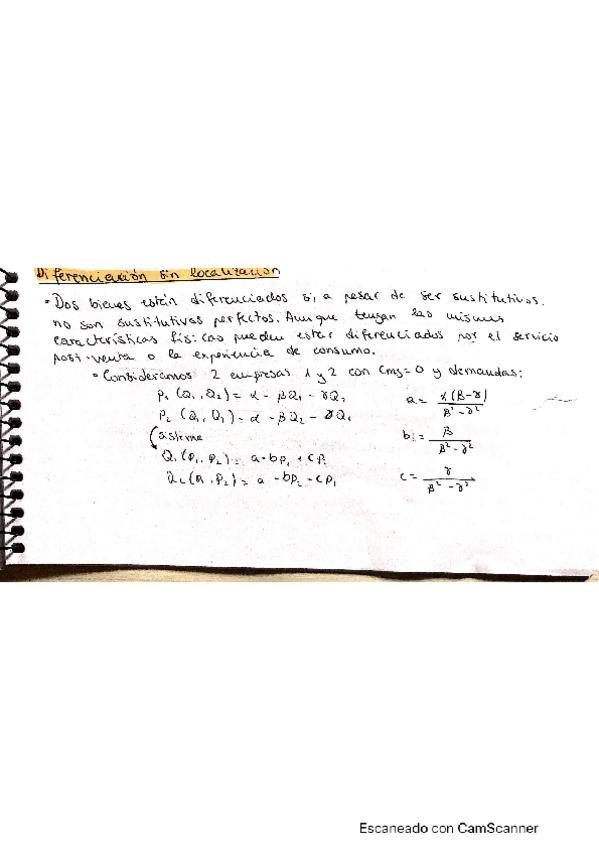 Diferenciación sin localización
• Dos bienes están diferenciados si, a pesar de ser sustitutivos,
no son sustitutivos perfectos. Aunque tengan las mismas
características físicas pueden estar diferenciados por el servicio
post-venta o la experiencia de consumo.
• Consideramos 2 empresas 1 y 2 con Cmg=0 y demandas:
P₁ (Q₁, Q₂) = α - βQ₁ - γQ₂ a = α(β-γ) / β² - γ²
P₂ (Q₁, Q₂) = α - βQ₂ - γQ₁
sistema b = β / β² - γ²
Q₁(P₁, P₂) = a - bp₁ + cp₂
Q₂(P₁, P₂) = a - bp₂ - cp₁ c = γ / β² - γ²
Escaneado con CamScanner